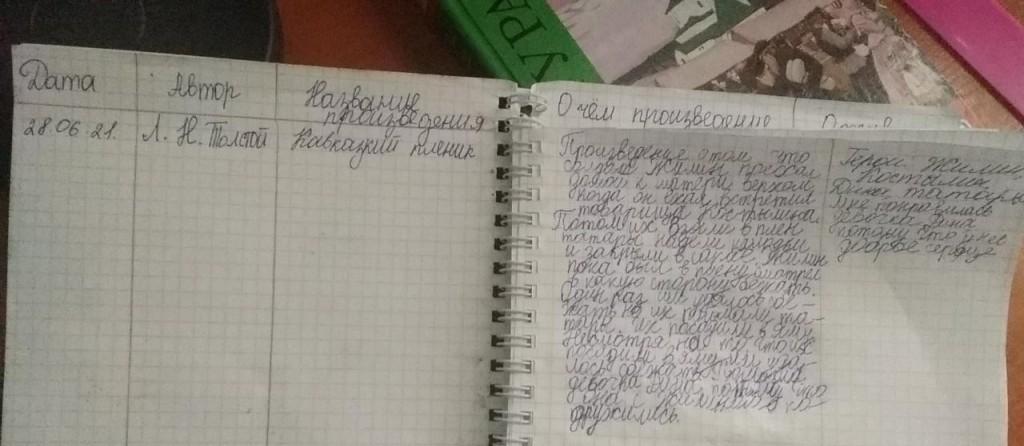 УРА
Дата
Автор
Название
произведения
О чём произведение
28.06.21.
Л. Н. Толстой
Кавказкий пленик
Произведение о том что
Жилин поехал
домой к матери верхом
когда он ехал встретил
товарища Костылина
Потом их взяли в плен
татары надели колодки
и закрыли в сарае. Жилин
пока был в плену смотрел
в какую сторону бежать.
Один раз им удалось бе-
жать но их поймали та-
тары и их посадили в яму
Несмотря на то что
девочка Дина потому что
они с Жилиным
дружились.
Герои Жилин
Костылин
Дина татары
Мне понравилась
девочка Дина
потому что у неё
доброе сердце